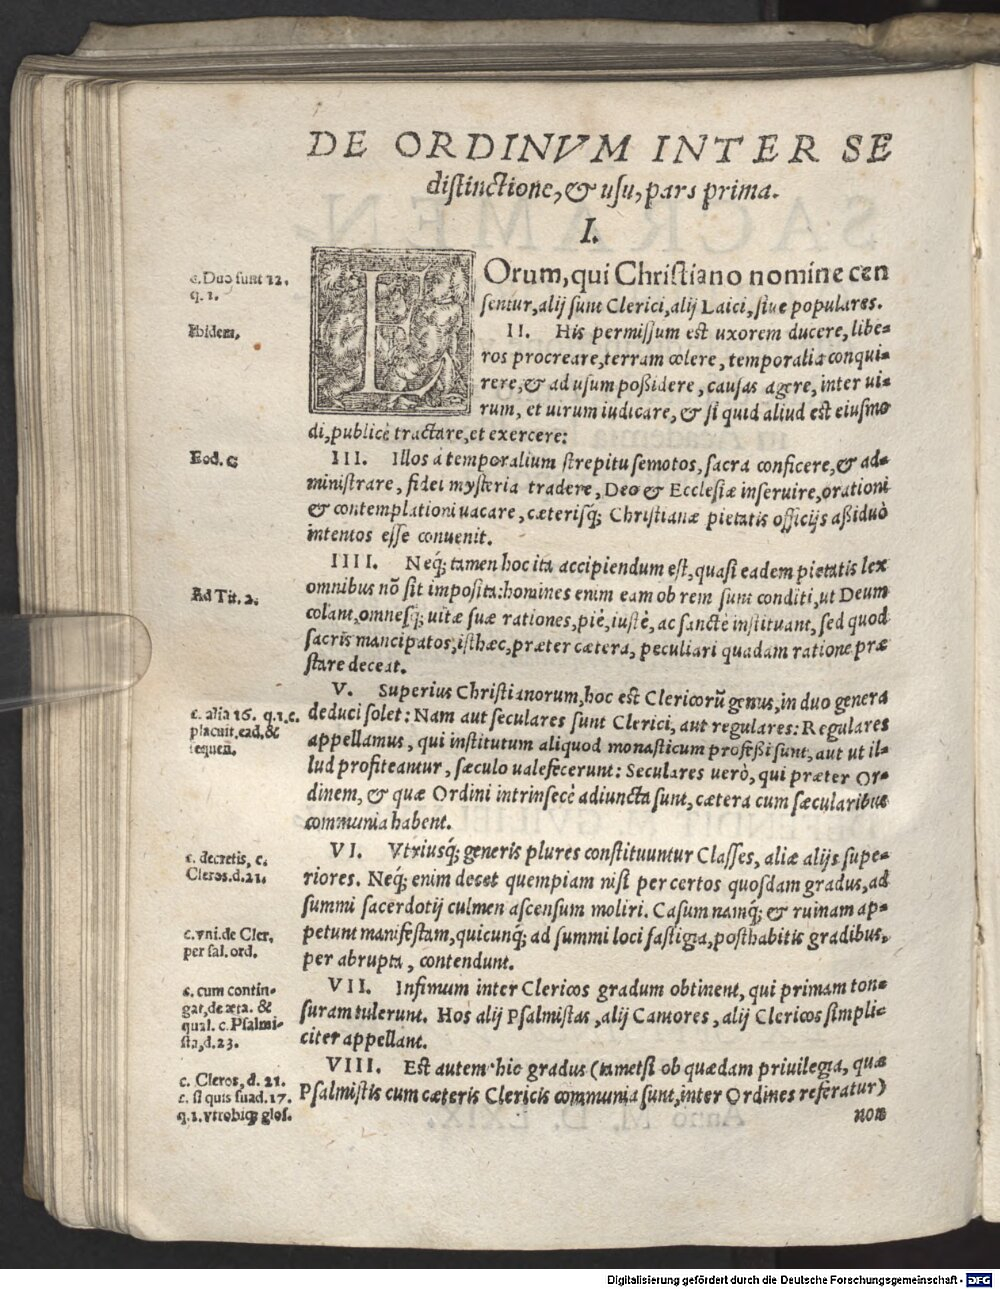 DE ORDINVM INTER SE
distinctione, & usu, pars prima.
I.
c. Duo sunt 12.
q. 1.
EOrum, qui Christiano nomine cen
sentur, alij sunt Clerici, alij Laici, siue populares.
Ibidem.
II. His permissum est uxorem ducere, libe-
ros procreare, terram colere, temporalia conqui-
rere, & ad usum possidere, causas agere, inter ui-
rum, et uirum iudicare, & si quid aliud est eiusmo
di, publicè tractare, et exercere:
Eod. c.
III. Illos à temporalium strepitu semotos, sacra conficere, & ad-
ministrare, fidei mysteria tradere, Deo & Ecclesiæ inseruire, orationi
& contemplationi uacare, cæterisq; Christianæ pietatis officijs assiduò
intentos esse conuenit.
IIII. Neq; tamen hoc ita accipiendum est, quasi eadem pietatis lex
Ad Tit. 2.
omnibus nõ sit imposita: homines enim eam ob rem sunt conditi, ut Deum
colant, omnesq; uitæ suæ rationes, piè, iustè, ac sanctè instituant, sed quod
sacris mancipatos, isthæc, præter cætera, peculiari quadam ratione præ
stare deceat.
V. Superius Christianorum, hoc est Clericorũ genus, in duo genera
c. alia 16. q. 1. c.
placuit, ead. &
sequen.
deduci solet: Nam aut seculares sunt Clerici, aut regulares: Regulares
appellamus, qui institutum aliquod monasticum professi sunt, aut ut il-
lud profiteantur, sæculo ualefecerunt: Seculares uerò, qui præter Or-
dinem, & quæ Ordini intrinsecè adiuncta sunt, cætera cum sæcularibus
communia habent.
c. decretis, c.
Cleros. d. 21.
VI. Vtriusq; generis plures constituuntur Classes, aliæ alijs supe-
riores. Neq; enim decet quempiam nisi per certos quosdam gradus, ad
summi sacerdotij culmen ascensum moliri. Casum namq; & ruinam ap-
c. vni. de Cler.
per sal. ord.
petunt manifestam, quicunq; ad summi loci fastigia, posthabitis gradibus,
per abrupta, contendunt.
c. cum contin-
gat, de æta. &
qual. c. Psalmi-
sta, d. 23.
VII. Infimum inter Clericos gradum obtinent, qui primam ton-
suram tulerunt. Hos alij Psalmistas, alij Cantores, alij Clericos simpli-
citer appellant.
c. Cleros, d. 21.
c. si quis suad. 17.
q. 1. vtrobiq; glos.
VIII. Est autem hic gradus (tametsi ob quædam priuilegia, quæ
Psalmistis cum cæteris Clericis communia sunt, inter Ordines referatur)
non
Digitalisierung gefördert durch die Deutsche Forschungsgemeinschaft - DFG